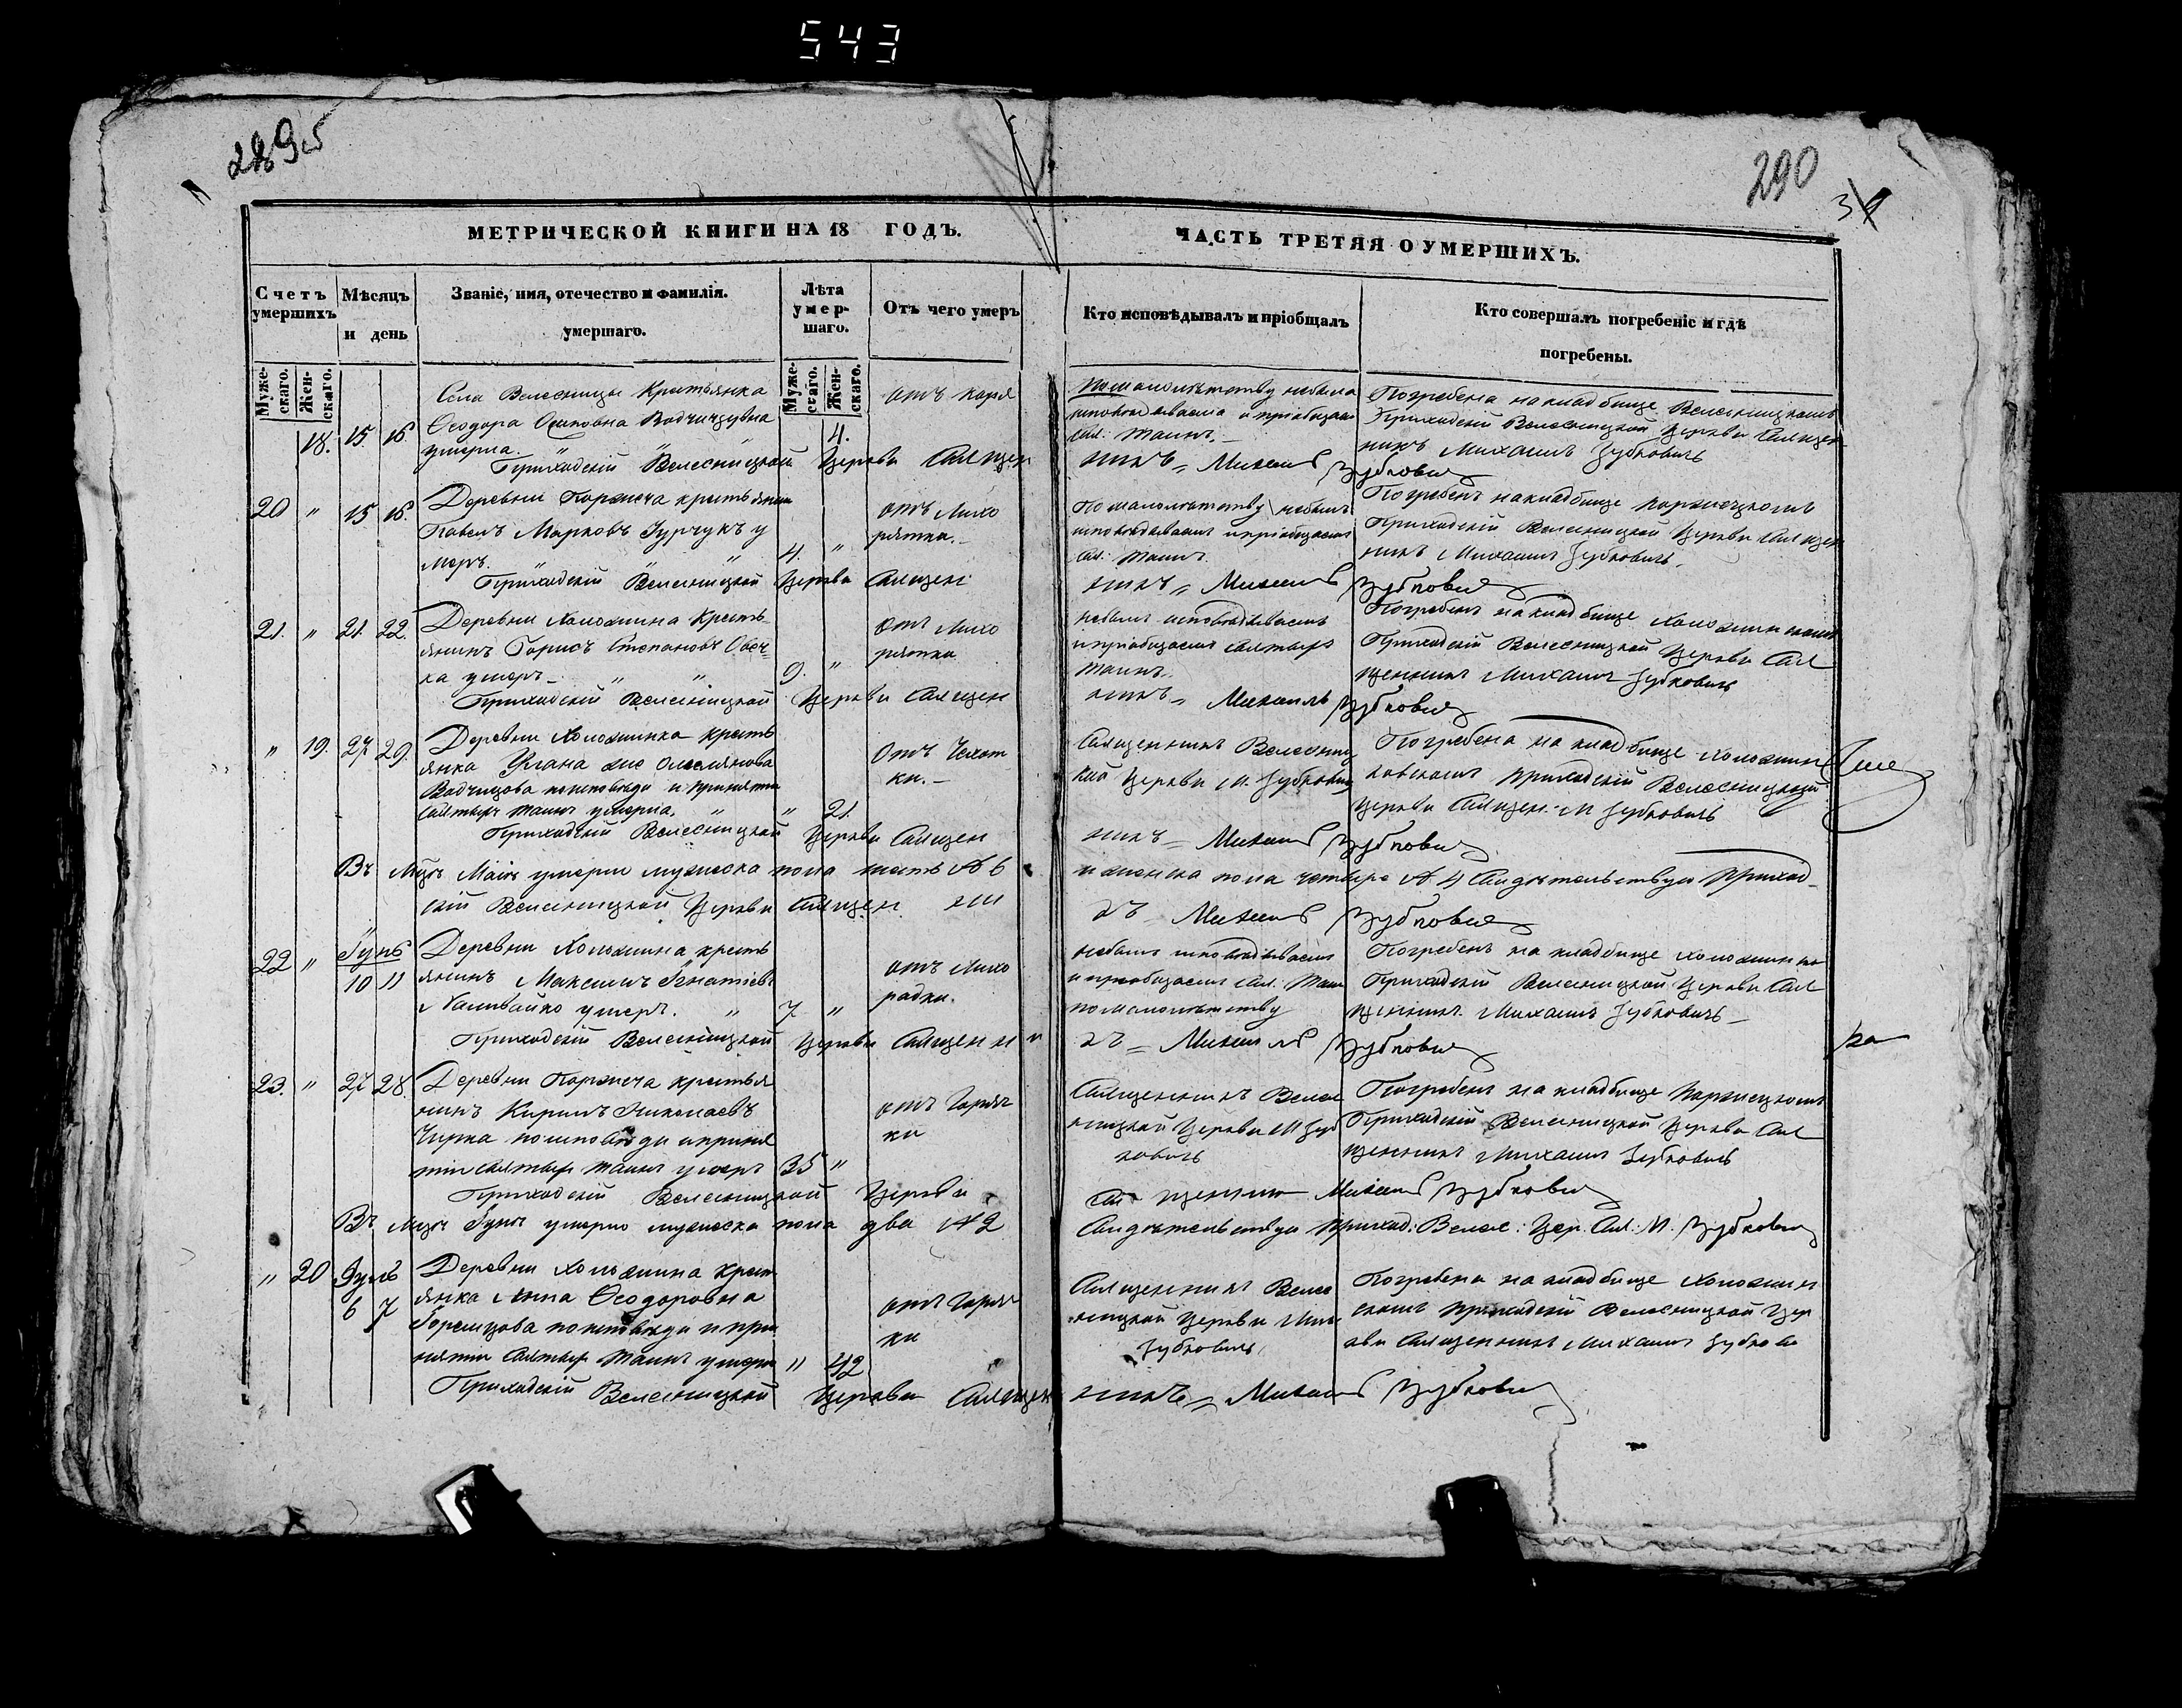 543
290
МЕТРИЧЕСКОЙ КНИГИ НА 18 ГОДЪ.
ЧАСТЬ ТРЕТЯЯ О УМЕРШИХЪ.
Счетъ умершихъ
Мѣсяцъ и день
Званіе, имя, отечество и фамилія.
умершаго.
Лѣта умершаго.
Отъ чего умеръ
Кто исповѣдывалъ и пріобщалъ
Кто совершалъ погребеніе и гдѣ
погребены.
Мужескаго.
Женскаго.
Мужескаго.
Женскаго.
18. 15 16.
Села Велесницы Крестьянка
Ѳеодора Осиповна
умерла.
4.
отъ коря
По малолѣтству небыла
исповѣдывасма и пріобщае
Свя: Таинъ.
Погребена на кладбище Велесницкомъ
Приходскій Велесницкой Церкви Священ
никъ Михаилъ Зубковичъ
Приходскій Велесницкой Церкви Священ
никъ Михаилъ Зубковичъ
20 " 15 16.
Деревни Поржеча крестьянин
Павелъ Марковъ Гурчукъ у
меръ.
4. "
отъ Лихо
рятки.
По малолѣтству небылъ
исповѣдываемъ и пріобщаемъ
Свя: Таинъ.
Погребенъ на кладбище Поржецкомъ
Приходскій Велесницкой Церкви Священ
никъ Михаилъ Зубковичъ.
Приходскій Велесницкой Церкви Священ
никъ Михаилъ Зубковичъ
21. " 21. 22.
Деревни Холожина Кресть
янинъ Борисъ Степановъ
ка умеръ
9. "
Отъ Лихо
рятки
небылъ исповѣдываемъ
и пріобщаемъ Святыхъ
Таинъ.
Погребенъ на кладбище Холожинскомъ
Приходскій Велесницкой Церкви Свя
щенникъ Михаилъ Зубковичъ
Приходскій Велесницкой Церкви Священ
никъ Михаилъ Зубковичъ
" 19. 27 29.
Деревни Холожинка кресть
янка
по исповѣди и принятіи
Святыхъ Таинъ умерла.
" 21.
Отъ Чехот
ки.
Священникъ Велесниц
кой Церкви М. Зубкович
Погребена на кладбище Холожин
ковскомъ Приходскій Велесницкой
Церкви Священ: М Зубковичъ
Приходскій Велесницкой Церкви Священ
никъ Михаилъ Зубковичъ
Въ Мцѣ Маіи умерли мужеска пола шесть № 6
и женска пола четыре № 4 Свидѣтельствую Приход
скій Велесницкой Церкви Священни
къ Михаилъ Зубковичъ
22 " Іунь 10 11
Деревни Холожина кресть
янинъ Максимъ Игнатіевъ
Наливайко умеръ.
7 "
отъ Лихо
радки.
небылъ исповѣдываемъ
и пріобщаемъ Свя: Таин
по малолѣтству
Погребенъ на кладбище Холожинско
Приходскій Велесницкой Церкви Свя
щенникъ Михаилъ Зубковичъ
Приходскій Велесницкой Церкви Священни
къ Михаилъ Зубковичъ
23. " 27 28.
Деревни Поржеча крестья
нинъ Кирилъ Николаевъ
Чирка по исповѣди и приня
тіи Святыхъ Таинъ умеръ
35 "
отъ Горяч
ки
Священникъ Велес
ницкой Церкви М Зуб
ковичъ
Погребенъ на кладбище Поржецкомъ
Приходскій Велесницкой Церкви Свя
щенникъ Михаилъ Зубковичъ
Приходскій Велесницкой Церкви
Священникъ Михаилъ Зубковичъ
Въ Мцѣ Іунѣ умерло мужеска пола два № 2
Свидѣтельствую Приход: Велес: Цер. Свя: М. Зубкович
" 20 Іулъ 6 7
Деревни Холожина Крест
янка Анна Ѳеодоровна
по исповѣди и при
нятіи Святых Таинъ умерла
" 42
отъ Горяч
ки
Священникъ Велес
ницкой Церкви Мих
Зубковичъ
Погребена на кладбище Холожин
скомъ Приходскій Велесницкой Цер
кви Священникъ Михаилъ Зубкови
Приходскій Велесницкой Церкви Священ
никъ Михаилъ Зубковичъ